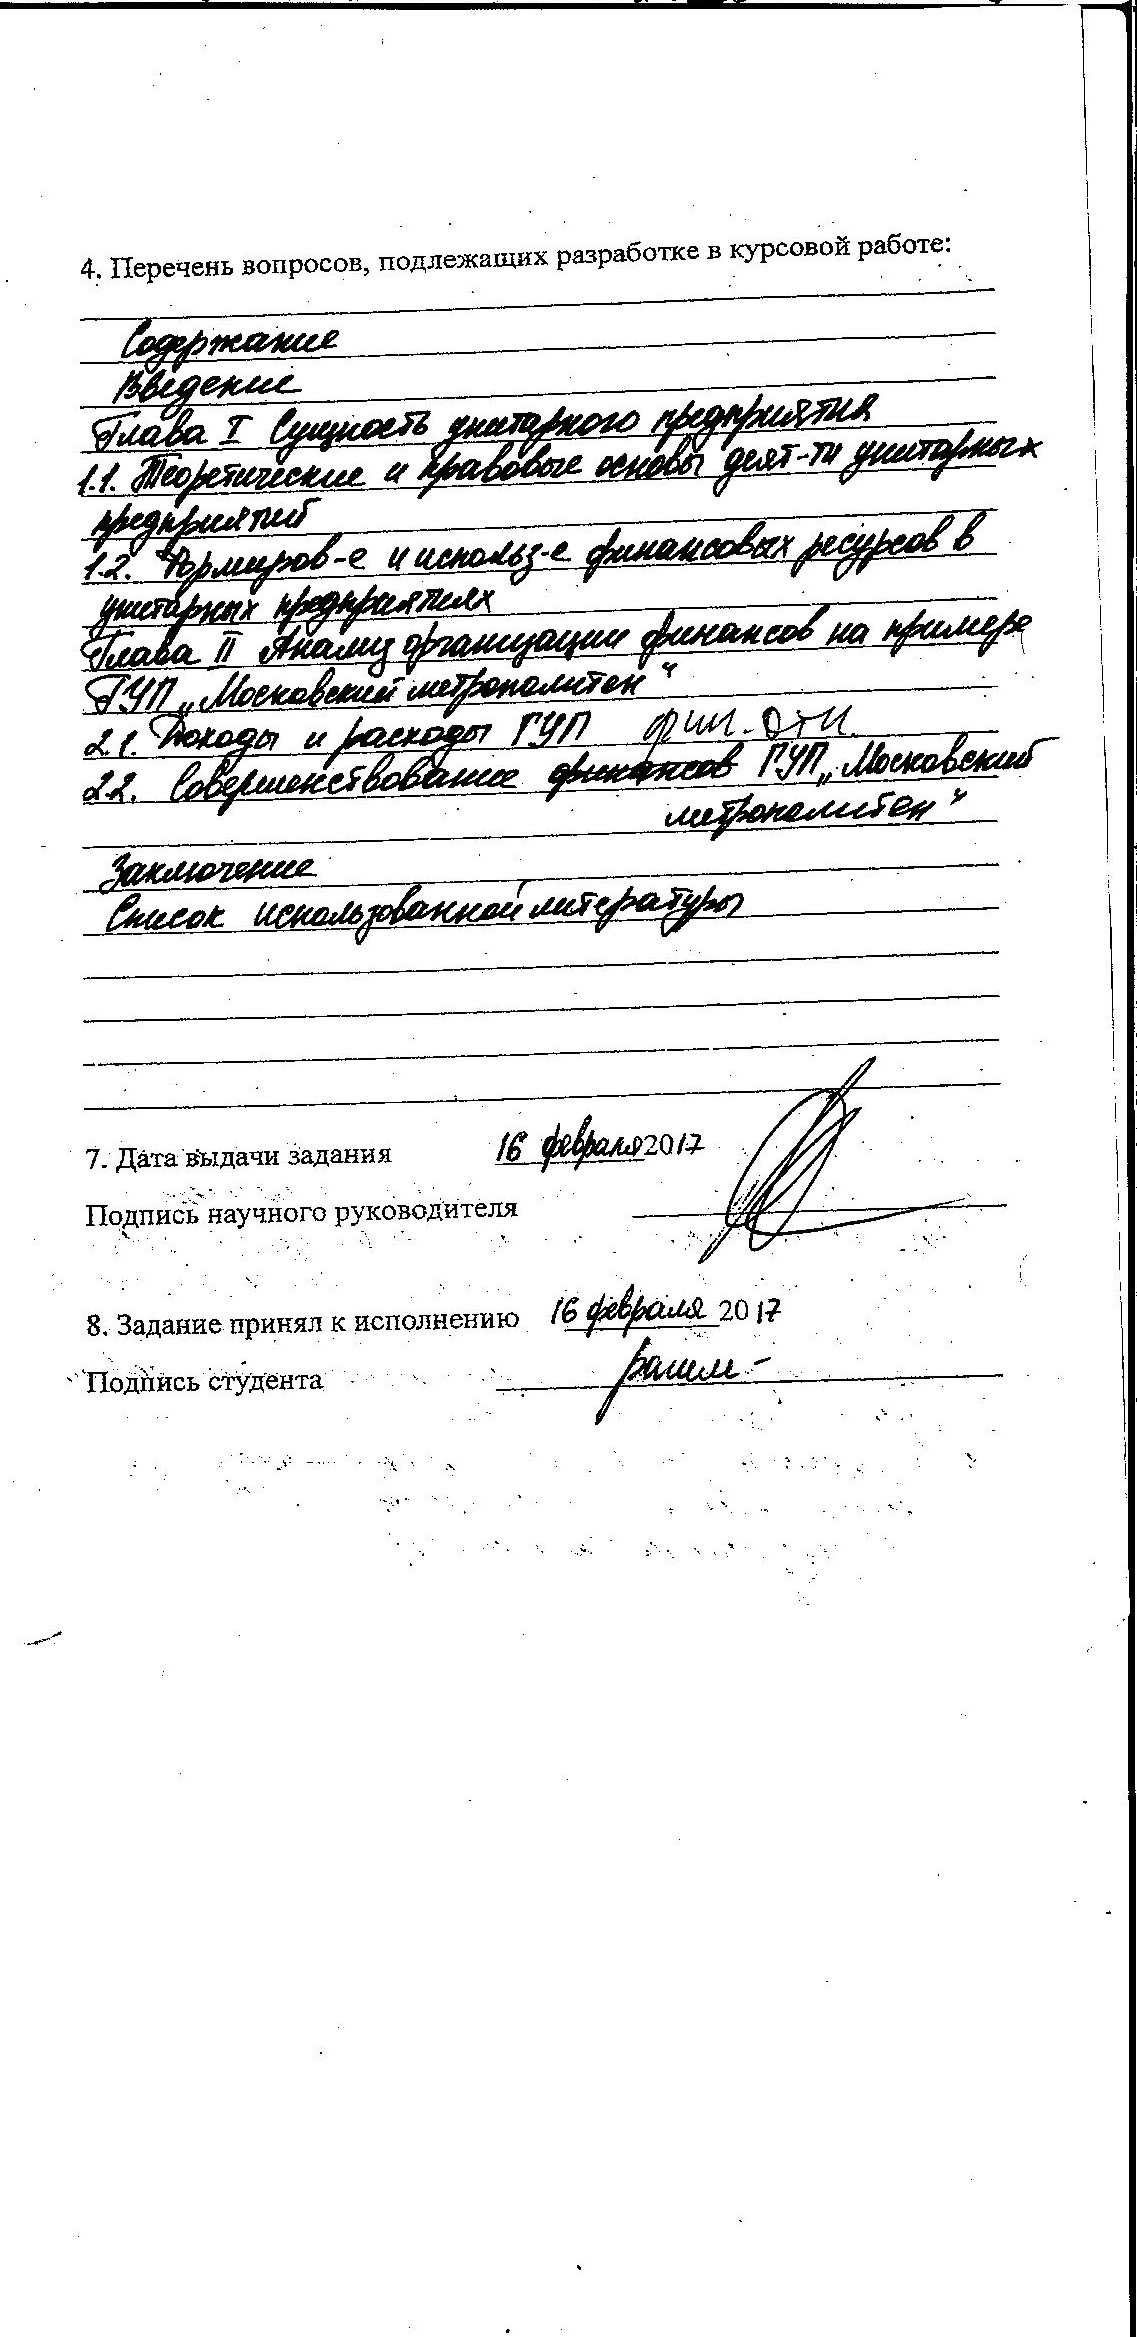 4. Перечень вопросов, подлежащих разработке в курсовой работе:
Содержание
Введение
Глава I Сущность унитарного предприятия
1.1. Теоретические и правовые основы деят-ти унитарных
предприятий
1.2. Формиров-е и использ-е финансовых ресурсов в
унитарных предприятиях
Глава II Анализ организации финансов на примере
ГУП „Московский метрополитен“
2.1. Доходы и расходы ГУП
2.2. Совершенствование финансов ГУП „Московский
метрополитен“
Заключение
Список использованной литературы
7. Дата выдачи задания 16 февраля 2017
Подпись научного руководителя
8. Задание принял к исполнению 16 февраля 2017
Подпись студента